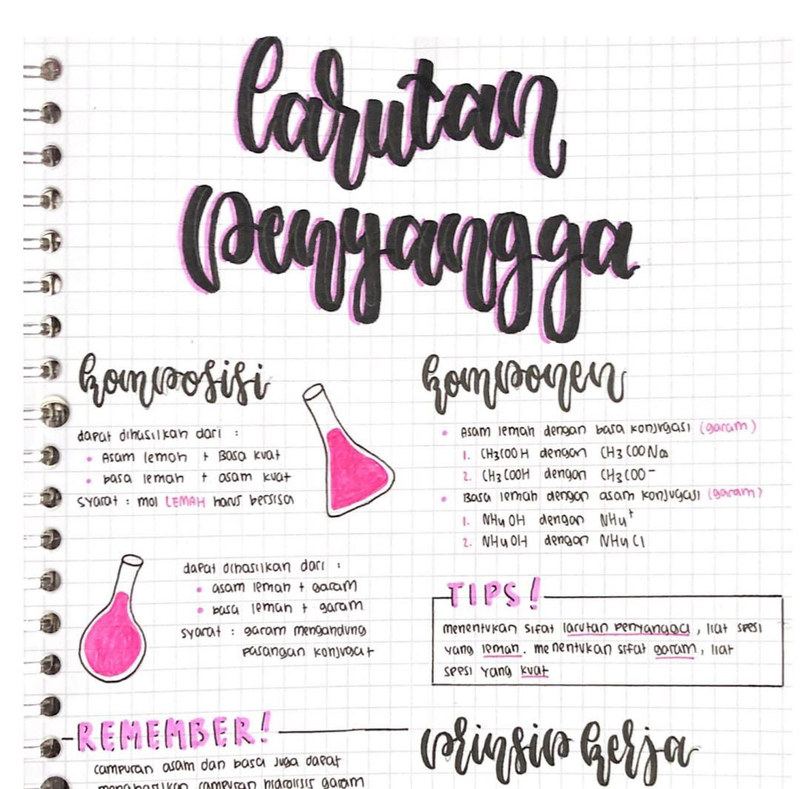 larutan
penyangga
komposisi
dapat dihasilkan dari :
• Asam lemah + Basa kuat
• basa lemah + asam kuat
syarat : mol LEMAH harus bersisa
dapat dihasilkan dari :
• asam lemah + garam
• basa lemah + garam
syarat : garam mengandung
pasangan konjugat
REMEMBER!
campuran asam dan basa juga dapat
menghasilkan campuran hidrolisis garam
komponen
• Asam lemah dengan basa konjugasi (garam)
1. CH3COOH dengan CH3COONa
2. CH3COOH dengan CH3COO⁻
• Basa lemah dengan asam konjugasi (garam)
1. NH4OH dengan NH4⁺
2. NH4OH dengan NH4Cl
TIPS!
menentukan sifat larutan penyangga, liat spesi
yang lemah. menentukan sifat garam, liat
spesi yang kuat
prinsip kerja